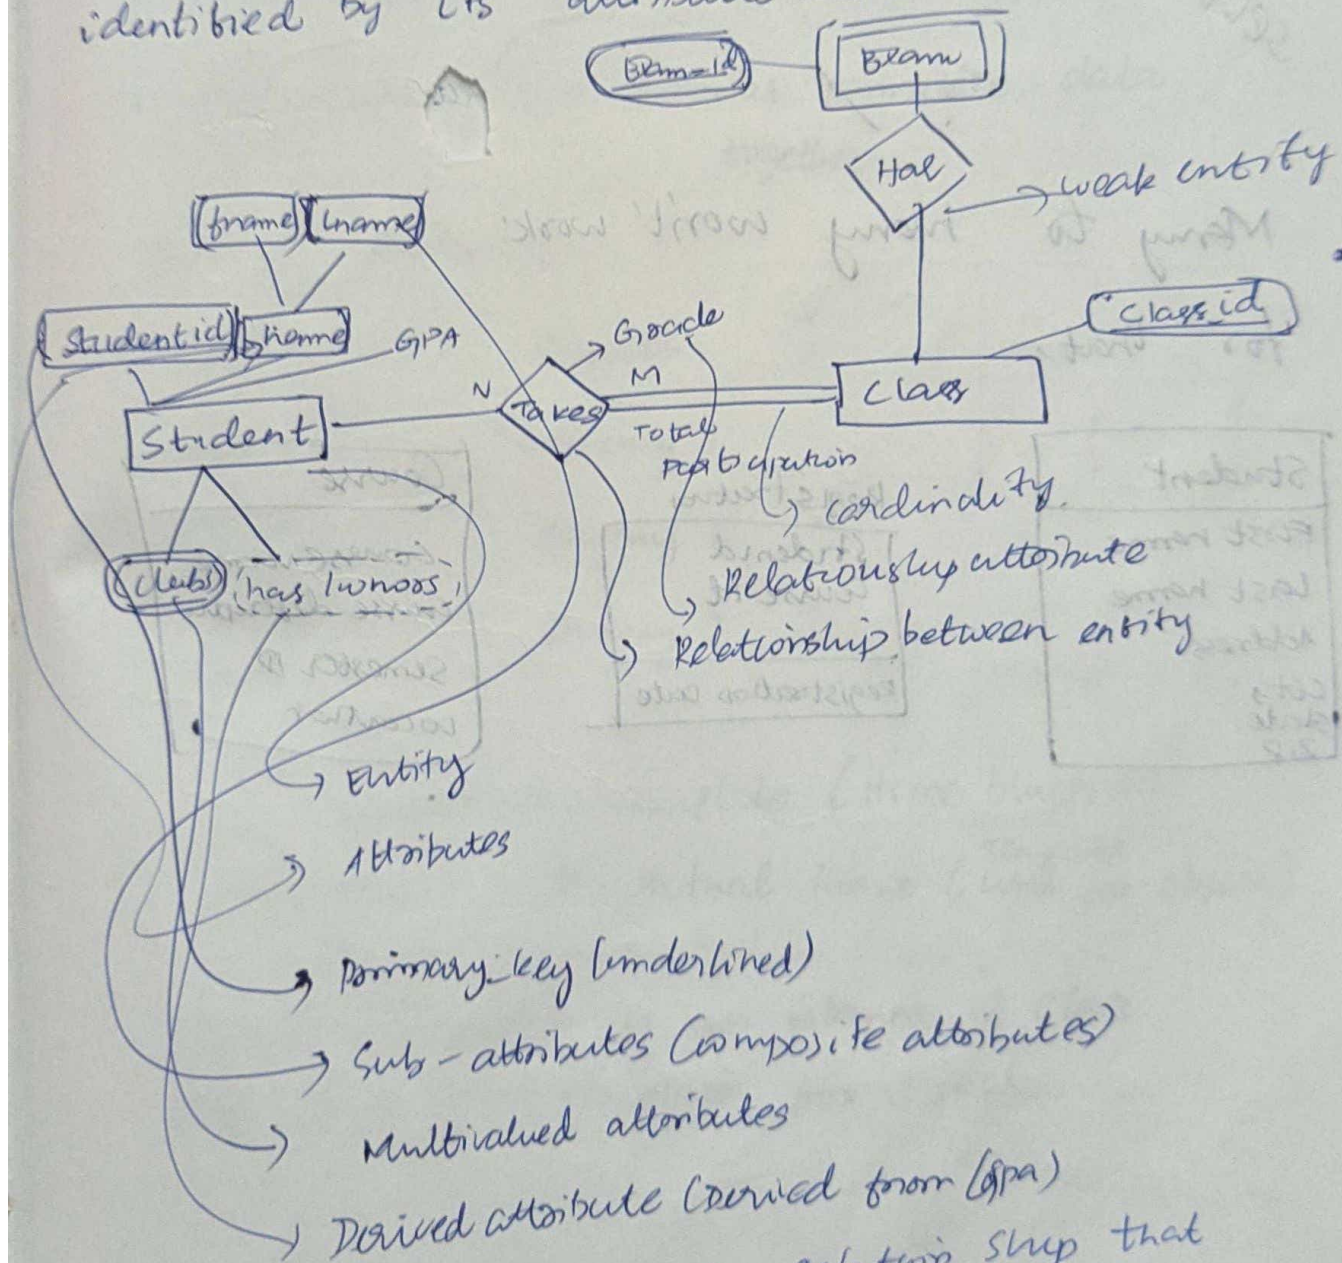 identified by its
Exam-id
Exam
Has
weak entity
fname
Lname
Class_id
Studentid
GPA
Grade
N
Takes
M
Class
Total
Participation
Student
cardinality
clubs
has honors
Relationship attribute
Relationship between entity
Entity
Attributes
Primary_key (underlined)
Sub-attributes (composite attributes)
Multivalued attributes
Derived attribute (Deried from (gpa)
ship that